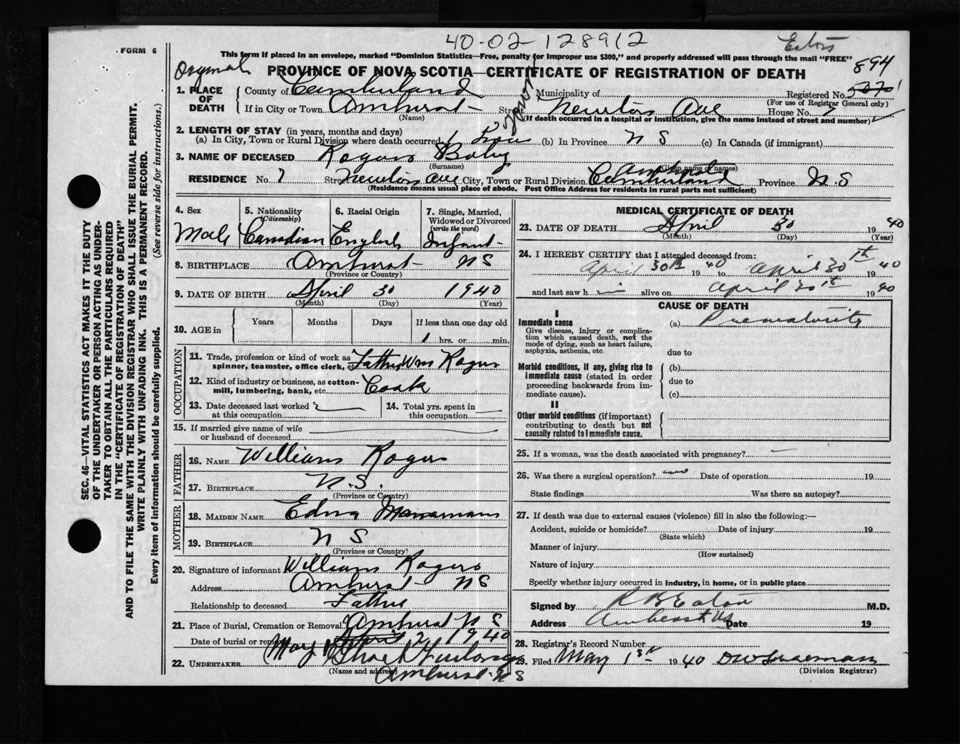 40-02-128912
FORM 6
This form if placed in an envelope, marked "Dominion Statistics—Free, penalty for improper use $300," and properly addressed will pass through the mail "FREE"
Original
PROVINCE OF NOVA SCOTIA—CERTIFICATE OF REGISTRATION OF DEATH
894
1. PLACE OF DEATH
County of Cumberland
Municipality of
Registered No.
(For use of Registrar General only)
If in City or Town Amherst
(Name)
Street Newton Ave House No. 7
(If death occurred in a hospital or institution, give the name instead of street and number)
2. LENGTH OF STAY (in years, months and days)
(a) In City, Town or Rural Division where death occurred 1 hour (b) In Province N S (c) In Canada (if immigrant)
3. NAME OF DECEASED Rogers Baby
(Surname)
RESIDENCE No. 7 Street Newton Ave City, Town or Rural Division Cumberland Province N.S
(Residence means usual place of abode. Post Office Address for residents in rural parts not sufficient)
4. Sex
Male
5. Nationality
(Citizenship)
Canadian
6. Racial Origin
English
7. Single, Married, Widowed or Divorced
(write the word)
Infant
8. BIRTHPLACE Amherst N S
(Province or Country)
9. DATE OF BIRTH April 30 1940
(Month) (Day) (Year)
10. AGE in Years Months Days If less than one day old
1 hrs. or min.
OCCUPATION
11. Trade, profession or kind of work as spinner, teamster, office clerk, etc. Father Wm Rogers
12. Kind of industry or business, as cotton-mill, lumbering, bank, etc. Cook
13. Date deceased last worked at this occupation
14. Total yrs. spent in this occupation
15. If married give name of wife or husband of deceased
FATHER
16. NAME William Rogers
17. BIRTHPLACE N.S.
(Province or Country)
MOTHER
18. MAIDEN NAME Edna
19. BIRTHPLACE N S
(Province or Country)
20. Signature of informant William Rogers
Address Amherst N S
Relationship to deceased Father
21. Place of Burial, Cremation or Removal Amherst N S
Date of burial or removal May 2 1940
22. UNDERTAKER
(Name and address)
Amherst N S
MEDICAL CERTIFICATE OF DEATH
23. DATE OF DEATH April 30 1940
(Month) (Day) (Year)
24. I HEREBY CERTIFY that I attended deceased from:
April 30th 1940 to April 30th 1940
and last saw him alive on April 30th 1940
CAUSE OF DEATH
I
Immediate cause
Give disease, injury or complication which caused death, not the mode of dying, such as heart failure, asphyxia, asthenia, etc.
(a) Prematurity
due to
Morbid conditions, if any, giving rise to immediate cause (stated in order proceeding backwards from immediate cause).
(b)
due to
(c)
II
Other morbid conditions (if important) contributing to death but not causally related to immediate cause.
25. If a woman, was the death associated with pregnancy?
26. Was there a surgical operation? no Date of operation 19
State findings Was there an autopsy?
27. If death was due to external causes (violence) fill in also the following:—
Accident, suicide or homicide? Date of injury 19
(State which)
Manner of injury
(How sustained)
Nature of injury
Specify whether injury occurred in industry, in home, or in public place
Signed by R B Eaton M.D.
Address Amherst NS Date 19
28. Registrar's Record Number
29. Filed May 1st 1940
(Division Registrar)
SEC. 46—VITAL STATISTICS ACT MAKES IT THE DUTY
OF THE UNDERTAKER OR PERSON ACTING AS UNDERTAKER TO OBTAIN ALL THE PARTICULARS REQUIRED
IN THE "CERTIFICATE OF REGISTRATION OF DEATH"
AND TO FILE THE SAME WITH THE DIVISION REGISTRAR WHO SHALL ISSUE THE BURIAL PERMIT.
WRITE PLAINLY WITH UNFADING INK. THIS IS A PERMANENT RECORD.
Every item of information should be carefully supplied. (See reverse side for instructions.)